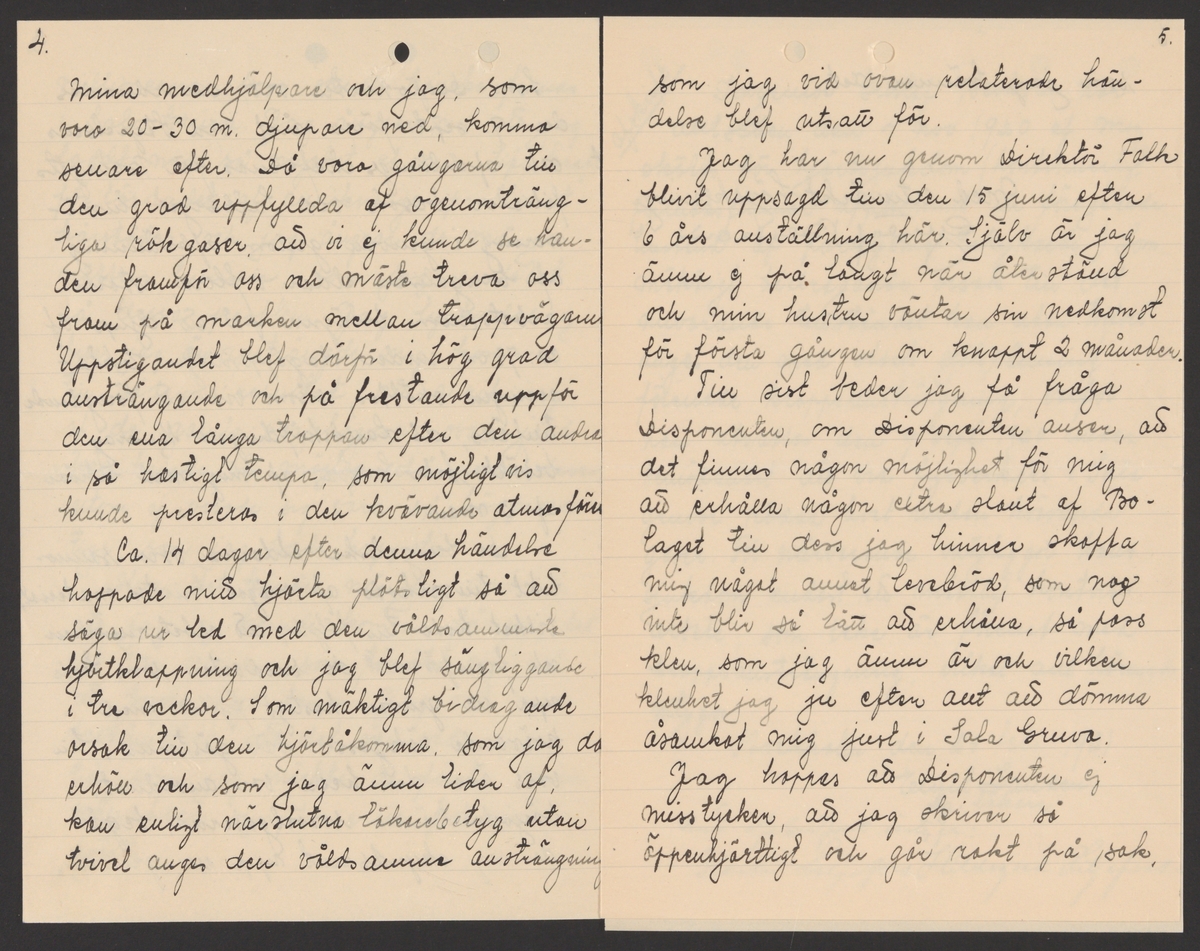 4.
Mina medhjälpare och jag, som
voro 20-30 m. djupare ned, komma
senare efter. Då voro gångarna till
den grad uppfyllda af ogenomträng-
liga rökgaser, att vi ej kunde se han-
den framför oss och måste treva oss
fram på marken mellan trappvägarna
Uppstigandet blef därför i hög grad
ansträngande och påfrestande uppför
den ena långa trappan efter den andra
i så hastigt tempo, som möjligtvis
kunde presteras i den kvävande atmosfären
Ca. 14 dagar efter denna händelse
hoppade mitt hjärta plötsligt så att
säga ur led med den våldsammaste
hjärtklappning och jag blef sängliggande
i tre veckor. Som mäktigt bidragande
orsak till den hjärtåkomma, som jag då
erhöll och som jag ännu lider af,
kan enligt närslutna läkarebetyg utan
tvivel anges den våldsamma ansträngning
5.
som jag vid ovan relaterade hän-
delse blef utsatt för.
Jag har nu genom Direktör Falk
blivit uppsagd till den 15 juni efter
6 års anställning här. Själv är jag
ännu ej på långt när återställd
och min hustru väntar sin nedkomst
för första gången om knappt 2 månader.
Till sist beder jag få fråga
Disponenten, om Disponenten anser, att
det finnes någon möjlighet för mig
att erhålla någon extra slant af Bo-
laget till dess jag hinner skaffa
mig något annat levebröd, som nog
inte blir så lätt att erhålla, så pass
klen, som jag ännu är och vilken
klenhet jag ju efter allt att dömma
åsamkat mig just i Sala Gruva.
Jag hoppas att Disponenten ej
misstycker, att jag skriver så
öppenhjärttigt och går rakt på sak,